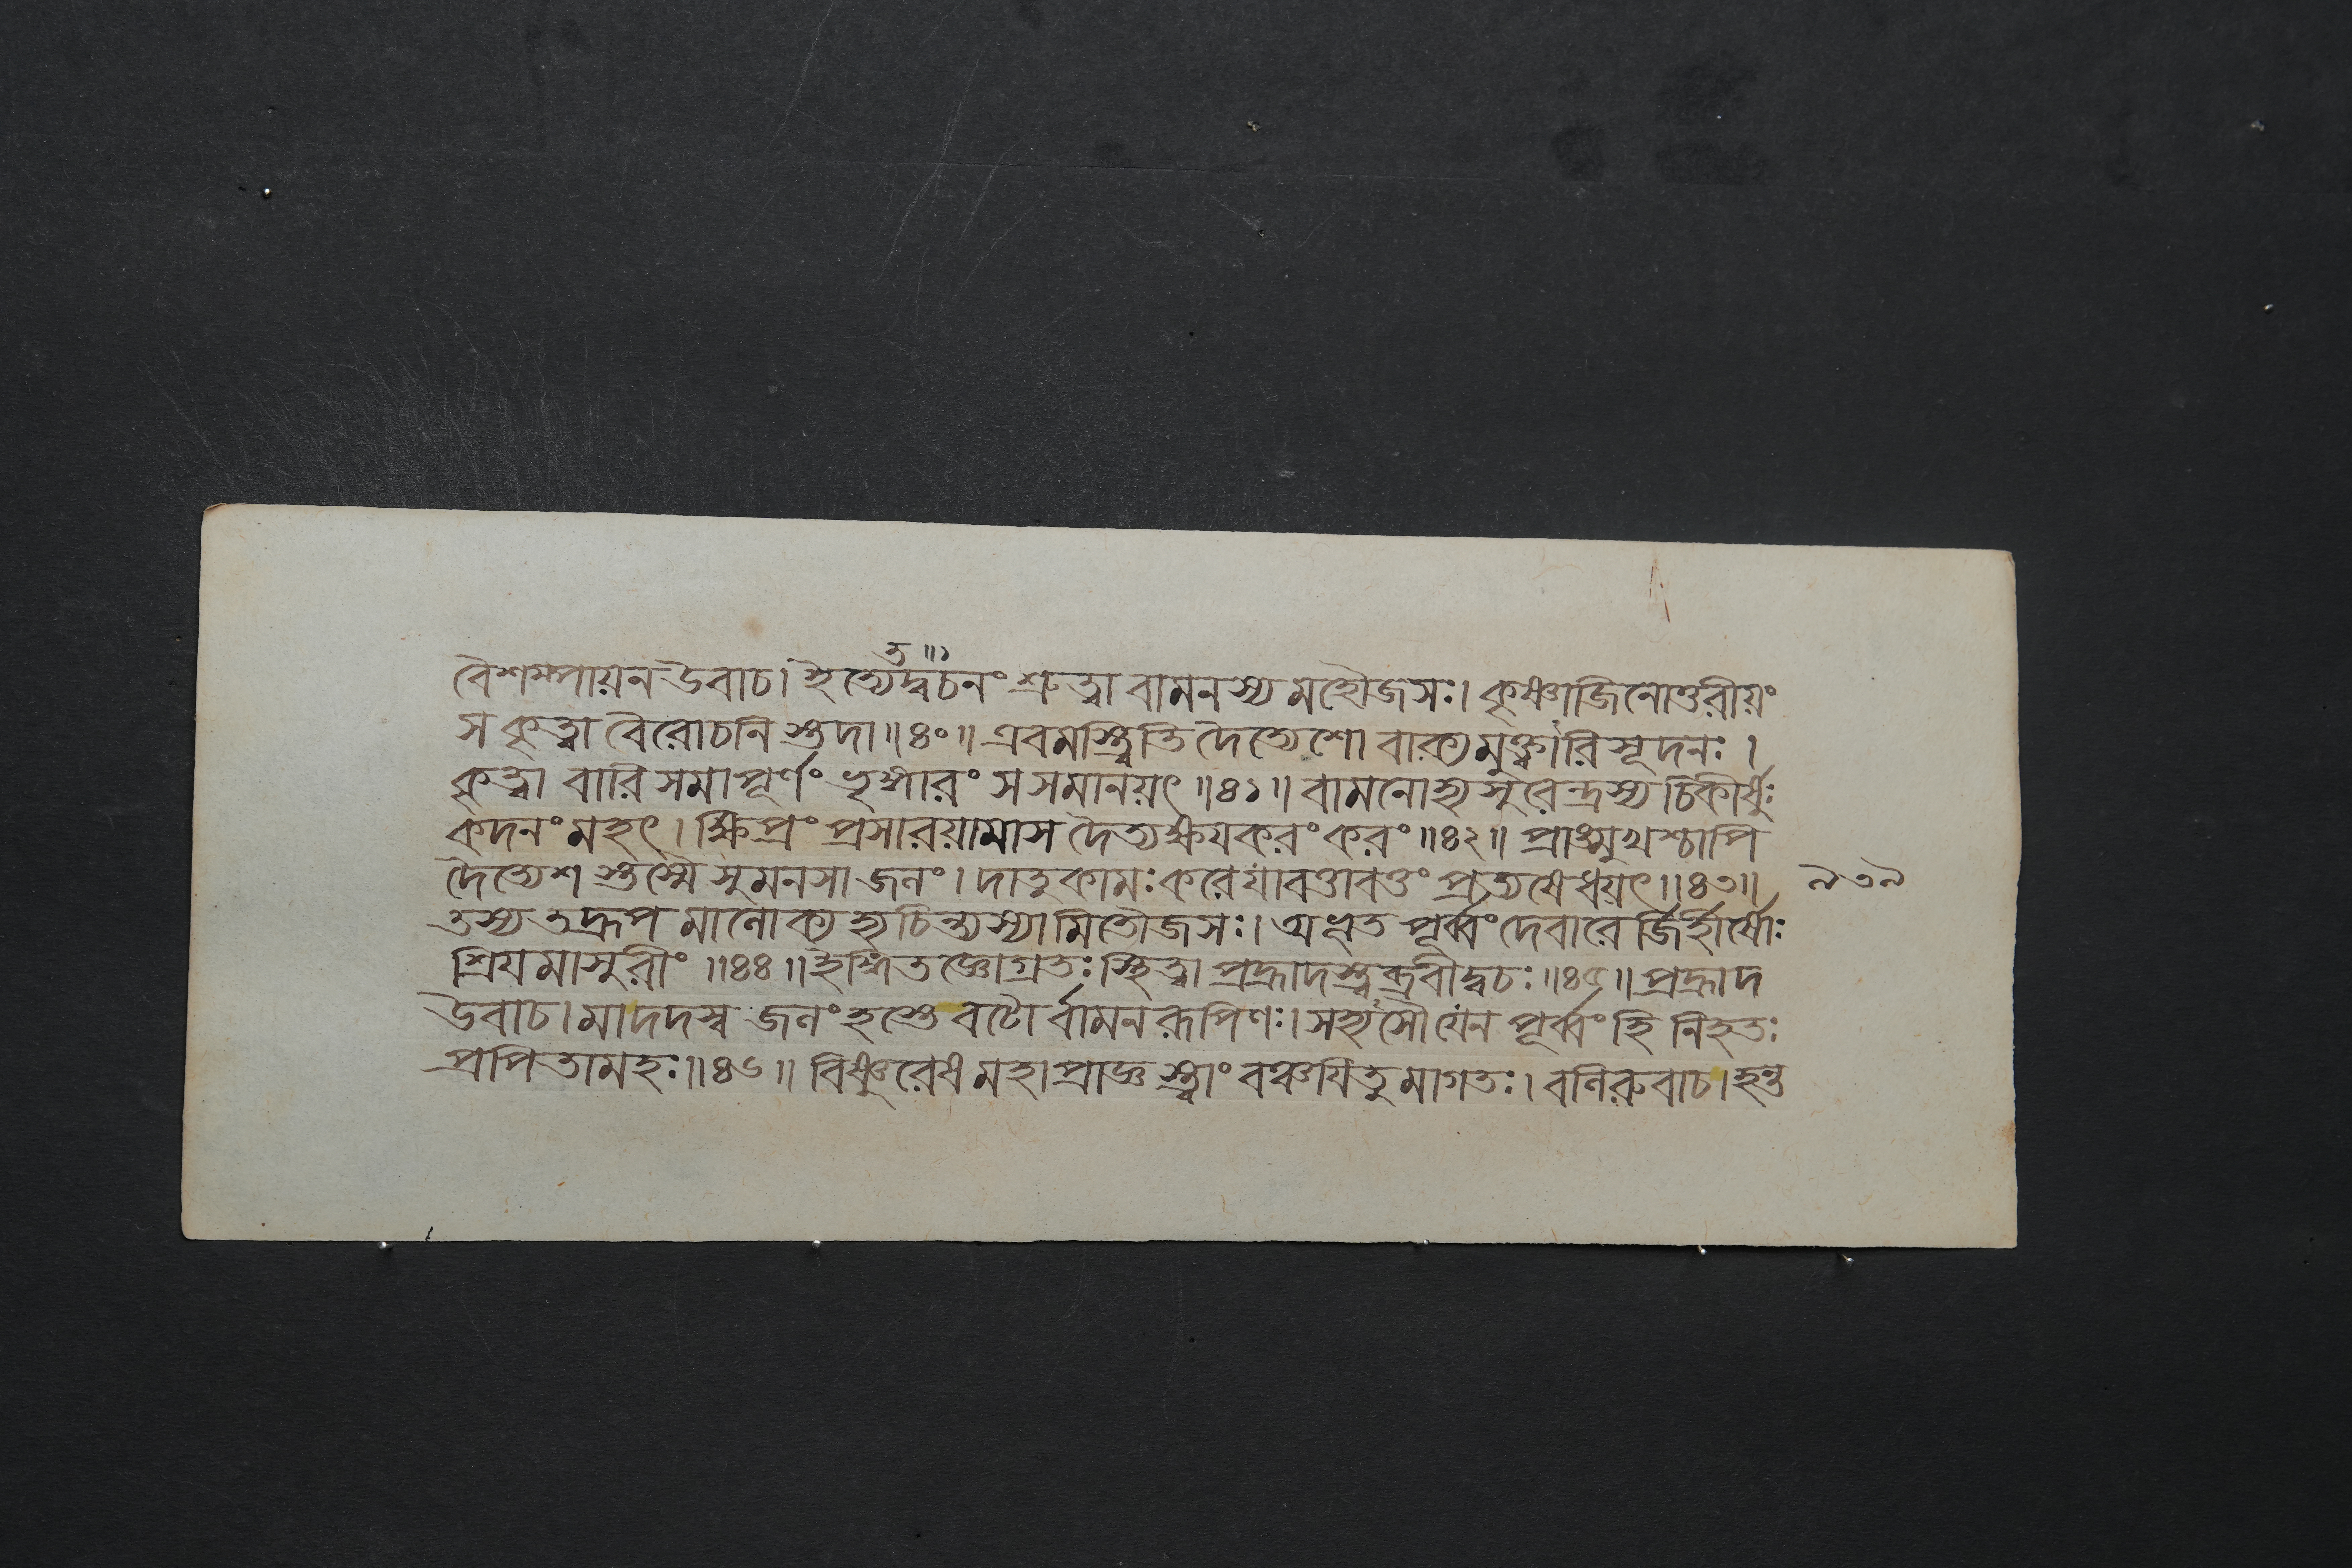 ত॥১
বৈশম্পায়ন উবাচ। ইত্যেদ্বচনং শ্রুত্বা বামনস্য মহৌজসঃ। কৃষ্ণাজিনোত্তরীয়ং
স কৃত্বা বৈরোচনি স্তদা॥৪০॥ এবমস্ত্বিতি দৈত্যেশো বাক্যমুক্ত্বারিসূদনঃ।
কৃত্বা বারি সমাপূর্ণং ভৃঙ্গারং স সমানয়ৎ॥৪১॥ বামনোহ্যসুরেন্দ্রস্য চিকীর্ষুঃ
কদনং মহৎ। ক্ষিপ্রং প্রসারয়ামাস দৈত্যক্ষয়করং করং॥৪২॥ প্রাঙ্মুখশ্চাপি
দৈত্যেশ স্তস্মৈ সুমনসা জলং। দাতুকামঃ করে যাবত্তাবত্তং প্রত্যষেধয়ৎ॥৪৩॥
৯৩৯
তস্য তদ্রূপ মালোক্য হ্যচিন্ত্যস্যামিতৌজসঃ। অভূত পূর্ব্বং দেবারে র্জিহীর্ষোঃ
শ্রিয়মাসুরীং॥৪৪॥ ইঙ্গিতজ্ঞোগ্রতঃ স্থিত্বা প্রহ্লাদস্ত্বব্রবীদ্বচঃ॥৪৫॥ প্রহ্লাদ
উবাচ। মাদদস্ব জলং হস্তে বটো র্বামনরূপিণঃ। সহ্যসৌ যেন পূর্ব্বং হি নিহতঃ
প্রপিতামহঃ॥৪৬॥ বিষ্ণুরেষ মহাপ্রাজ্ঞ স্ত্বাং বঞ্চয়িতুমাগতঃ। বলিরুবাচ। হন্ত